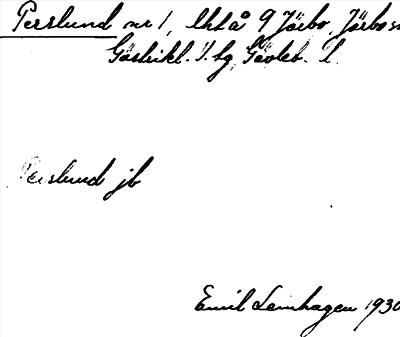 Perslund nr 1, lht å 9 Järbo, Järbo sn
Gästrikl. V. tg, Gävleb. l.
Perslund jb
Emil Lemhagen 1930